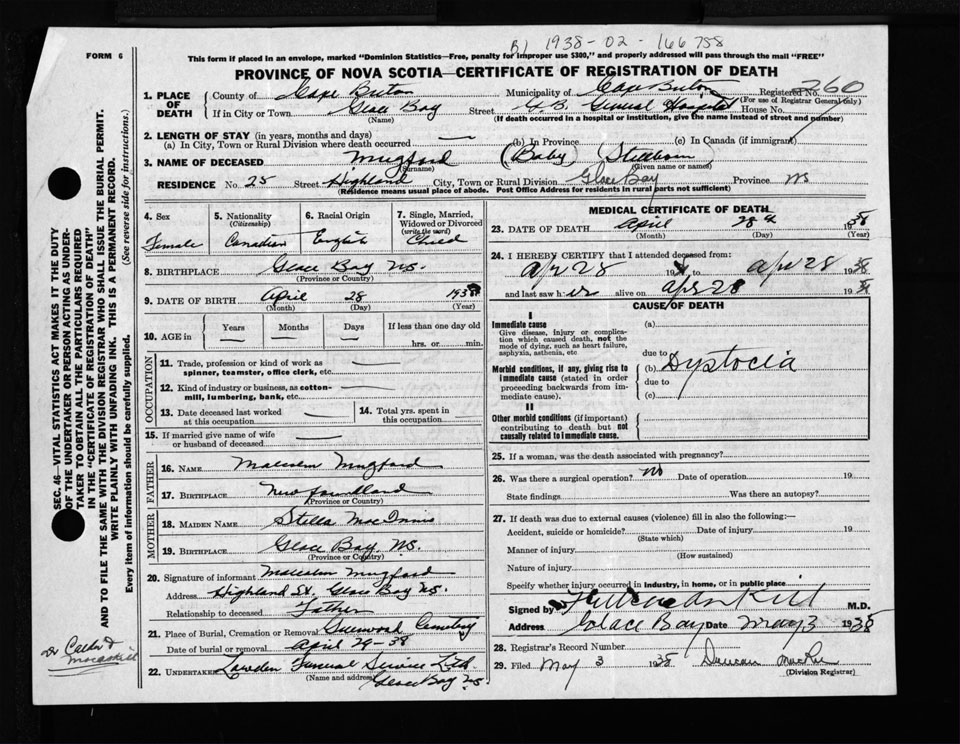 B) 1938-02-166758
FORM 6
This form if placed in an envelope, marked "Dominion Statistics—Free, penalty for improper use $300," and properly addressed will pass through the mail "FREE"
PROVINCE OF NOVA SCOTIA—CERTIFICATE OF REGISTRATION OF DEATH
1. PLACE OF DEATH
County of Cape Breton Municipality of Cape Breton Registered No. 260
(For use of Registrar General only)
If in City or Town Glace Bay Street G.B. General Hospital House No.
(Name) (If death occurred in a hospital or institution, give the name instead of street and number)
2. LENGTH OF STAY (in years, months and days)
(a) In City, Town or Rural Division where death occurred — (b) In Province (c) In Canada (if immigrant)
3. NAME OF DECEASED Mugford (Baby) (Stillborn)
(Surname) (Given name or names)
RESIDENCE No. 25 Street Highland City, Town or Rural Division Glace Bay Province NS
(Residence means usual place of abode. Post Office Address for residents in rural parts not sufficient)
4. Sex
Female
5. Nationality
(Citizenship)
Canadian
6. Racial Origin
English
7. Single, Married, Widowed or Divorced
(write the word)
Child
8. BIRTHPLACE Glace Bay NS.
(Province or Country)
9. DATE OF BIRTH April 28 1938
(Month) (Day) (Year)
10. AGE in
Years Months Days If less than one day old
— — — hrs. or min.
OCCUPATION
11. Trade, profession or kind of work as spinner, teamster, office clerk, etc. —
12. Kind of industry or business, as cotton-mill, lumbering, bank, etc. —
13. Date deceased last worked at this occupation — 14. Total yrs. spent in this occupation
15. If married give name of wife or husband of deceased —
FATHER
16. NAME Malcolm Mugford
17. BIRTHPLACE Newfoundland
(Province or Country)
MOTHER
18. MAIDEN NAME Stella MacInnis
19. BIRTHPLACE Glace Bay, NS.
(Province or Country)
20. Signature of informant Malcolm Mugford
Address Highland St. Glace Bay NS.
Relationship to deceased Father
21. Place of Burial, Cremation or Removal Greenwood Cemetery
Date of burial or removal April 29-38
22. UNDERTAKER Funeral Service Ltd.
(Name and address) Glace Bay NS.
MEDICAL CERTIFICATE OF DEATH
23. DATE OF DEATH April 28th 1938
(Month) (Day) (Year)
24. I HEREBY CERTIFY that I attended deceased from:
Apr 28 19 to Apr 28 1938
and last saw her alive on Apr 28 19
CAUSE OF DEATH
I
Immediate cause
Give disease, injury or complication which caused death, not the mode of dying, such as heart failure, asphyxia, asthenia, etc
(a)
due to
Morbid conditions, if any, giving rise to immediate cause (stated in order proceeding backwards from immediate cause).
(b) Dystocia
due to
(c)
II
Other morbid conditions (if important) contributing to death but not causally related to immediate cause.
25. If a woman, was the death associated with pregnancy?
26. Was there a surgical operation? no Date of operation 19
State findings Was there an autopsy?
27. If death was due to external causes (violence) fill in also the following:—
Accident, suicide or homicide? Date of injury 19
(State which)
Manner of injury
(How sustained)
Nature of injury
Specify whether injury occurred in industry, in home, or in public place
Signed by M.D.
Address Glace Bay Date May 3 1938
28. Registrar's Record Number
29. Filed May 3 1938 Duncan MacRae
(Division Registrar)
SEC. 46—VITAL STATISTICS ACT MAKES IT THE DUTY
OF THE UNDERTAKER OR PERSON ACTING AS UNDER-
TAKER TO OBTAIN ALL THE PARTICULARS REQUIRED
IN THE "CERTIFICATE OF REGISTRATION OF DEATH"
AND TO FILE THE SAME WITH THE DIVISION REGISTRAR WHO SHALL ISSUE THE BURIAL PERMIT.
WRITE PLAINLY WITH UNFADING INK. THIS IS A PERMANENT RECORD.
Every item of information should be carefully supplied. (See reverse side for instructions.)
Dr